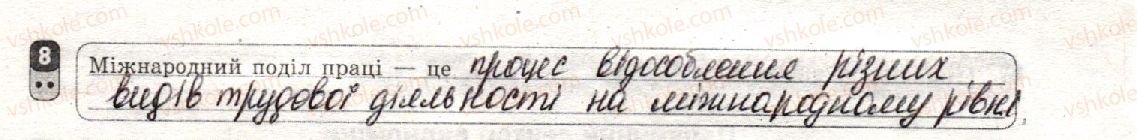 8
Міжнародний поділ праці — це процес відособлення різних
видів трудової діяльності на міжнародному рівні.